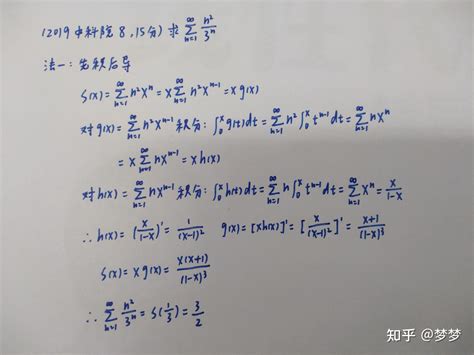 (2019中科院 8,15分) 求 ∑_{n=1}^{∞} n²/3ⁿ
法一:先积后导
S(x)=∑_{n=1}^{∞} n²xⁿ = x∑_{n=1}^{∞} n²xⁿ⁻¹ = x g(x)
对g(x)=∑_{n=1}^{∞} n²xⁿ⁻¹ 积分: ∫₀ˣ g(t)dt = ∑_{n=1}^{∞} n² ∫₀ˣ tⁿ⁻¹dt = ∑_{n=1}^{∞} nxⁿ
= x∑_{n=1}^{∞} nxⁿ⁻¹ = x h(x)
对h(x)=∑_{n=1}^{∞} nxⁿ⁻¹ 积分: ∫₀ˣ h(t)dt = ∑_{n=1}^{∞} n∫₀ˣ tⁿ⁻¹dt = ∑_{n=1}^{∞} xⁿ = x/(1-x)
∴ h(x)=(x/(1-x))' = 1/(x-1)² g(x)=[xh(x)]' = [x/(x-1)²]' = (x+1)/(1-x)³
S(x)=x g(x)= x(x+1)/(1-x)³
∴ ∑_{n=1}^{∞} n²/3ⁿ = S(1/3) = 3/2
知乎 @梦梦